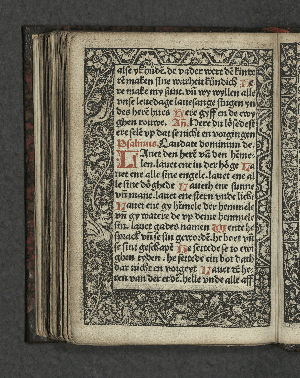 alse yk sundē. de vader were dē kinre
rē maken sine warheit kūdich He
re make my sunt. vn̄ wy wyllen alle
vnse leuedage lauesange singen yn
des herē hues Here gyff en de ewy
ghen rouwe. An̄. Here du lösedest
ere sele vp dat se nicht en vorgingen
Psalmus. Laudate dominum de.
Lauet den herē vā den hēme
len. lauet ene in der höge La
uet ene alle sine engele. lauet ene al
le sine döghede Laueth ene sunne
vn̄ mane. lauet ene stern vnde licht
Lauet ene gy himele der hemmele
vn̄ gy watere de vp deme hemmele
sin. lauet gades namen Wente he
sprack vn̄ se sin gewordē. he boet vn̄
se sint geschapē He settede se to ewy
ghen tyden. he settede ein bot dath
dar nicht en vorgeyt Lauet dē he-
ren van der erdē. helle vnde alle aff